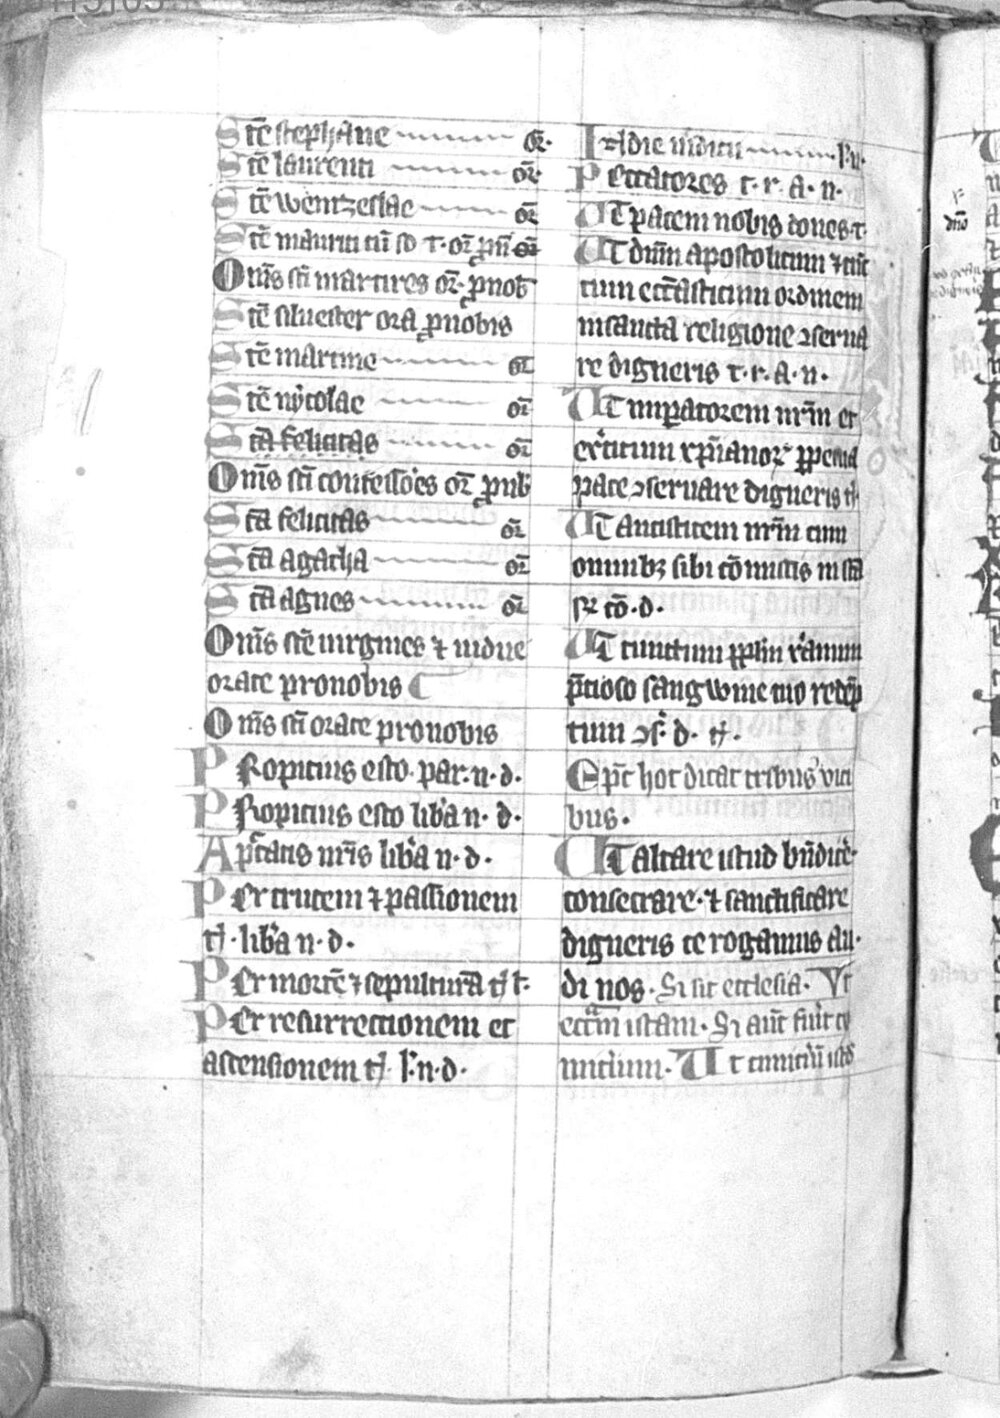 Stē stephane or̄
Stē laurenti or̄
Stē wentzeslae or̄
Stē mauriti cū so t. or̄ ꝓ n̄
Om̄s sc̄i martires or̄ ꝓ nob
Stē siluester ora ꝓ nobis
Stē martine or̄
Stē nycolae or̄
Stā felicitas or̄
Om̄s sc̄i confessōes or̄ ꝓ nob
Stā felicitas or̄
Stā agatha or̄
Stā agnes or̄
Om̄s stē uirgines ⁊ uidue
orate pro nobis
Om̄s sc̄i orate pro nobis
Propitius esto. par. n. d.
Propitius esto lib̄a n. d.
A pctatis nr̄is lib̄a n. d.
Per crucem ⁊ passionem
tȷ. lib̄a n. d.
Per mortē ⁊ sepulturā tȷ l.
Per resurrectionem et
ascensionem tȷ. l. n. d.
In die iudicii l. n.
Peccatores t. r. a. n.
UT pacem nobis dones. t.
UT dm̄n apostolicum ⁊ cūc
tum eccl̄iasticum ordinem
in sancta religione ꝯserua
re digneris t. r. a. n.
UT imperatorem nr̄m et
ex̄citum xp̄ianoꝝ ꝑpetua
pace ꝯseruare digneris t
UT antistitem nr̄m cum
omnibꝫ sibi cōmissis in sc̄a
UT cunctum ꝓplm xp̄ianum
p̄tioso sangwine tuo redēp
tum ꝯs. d. tȷ.
Ep̄c hoc dicat tribus uici
bus.
UT altare istud bn̄dicē.
consecrare. ⁊ sanctificare
digneris te rogamus au.
di nos. Si sit ecclesia. Vt
ecclam istam. Si aūt fūit cy
miterium. Ut cimiteriū istd
dn̄o